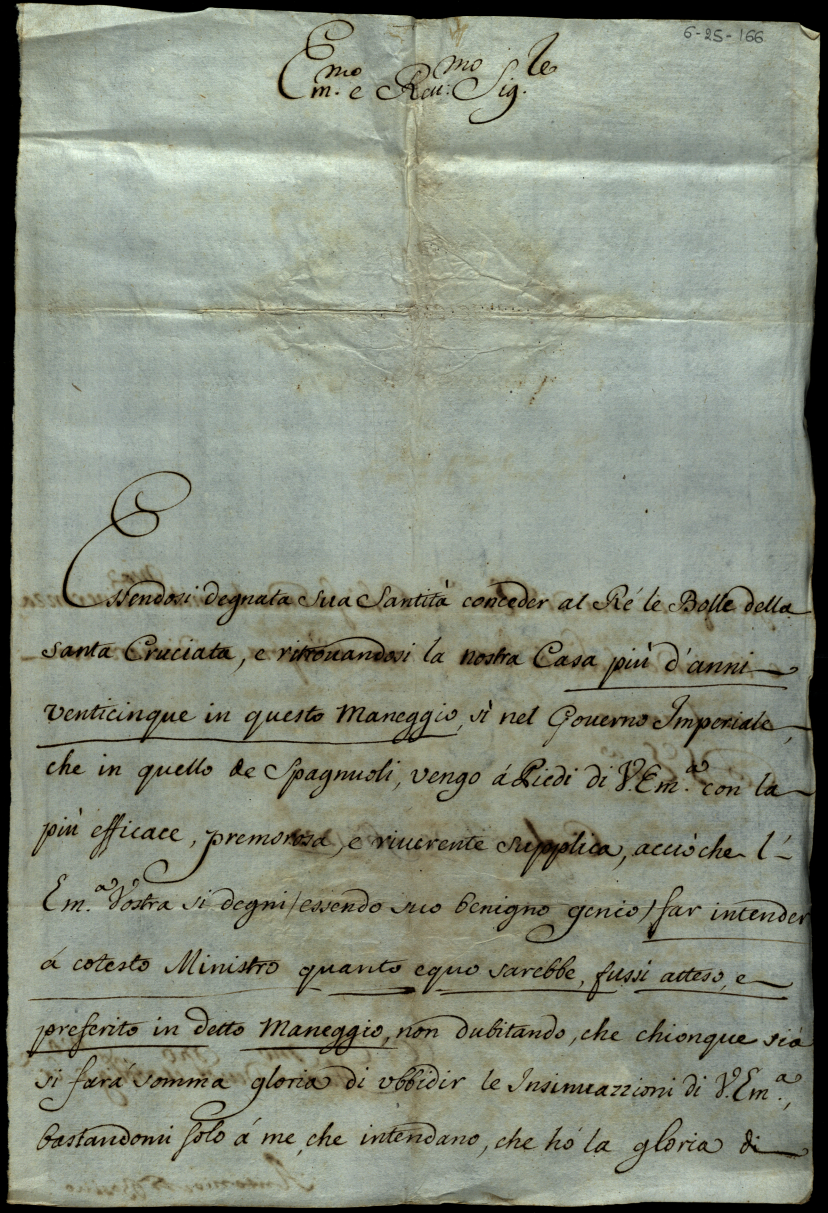 6-25-166
Em.mo e Reu:mo Sig.le
Essendosi degnata sua Santità conceder al Ré le Bolle della
santa Cruciata, e ritrouandosi la nostra Casa più d'anni
venticinque in questo Maneggio, sì nel Gouerno Imperiale,
che in quello de Spagnuoli, vengo á Piedi di V. Em.a con la
più efficace, premorosa, e riuerente supplica, acciòche l'-
Em.a Vostra si degni (essendo suo benigno genio) far intender
á cotesto Ministro quanto equo sarebbe, fussi atteso, e
preferito in detto Maneggio, non dubitando, che chionque sia
si fará somma gloria di vbbidir le Insinuazzioni di V. Em.a,
bastandomi solo á me, che intendano, che hó la gloria di